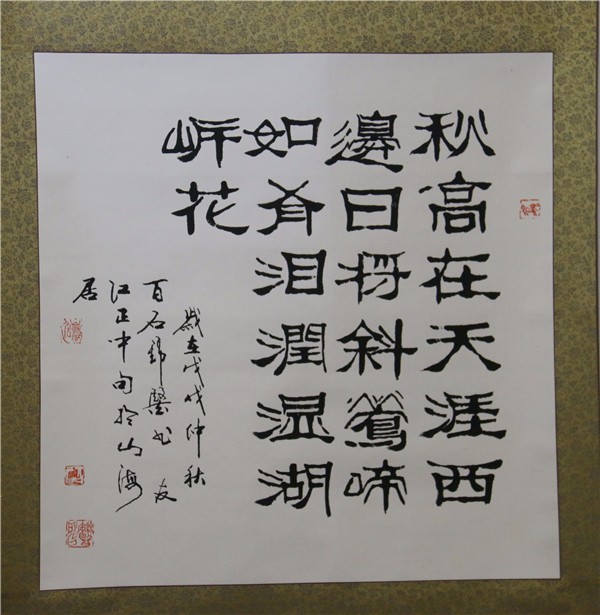 秋高在天涯西
邊日将斜鶯啼
如有泪潤湿湖
岍花
歲在戊戌仲秋
百石錦书友
江正中句於山海
居